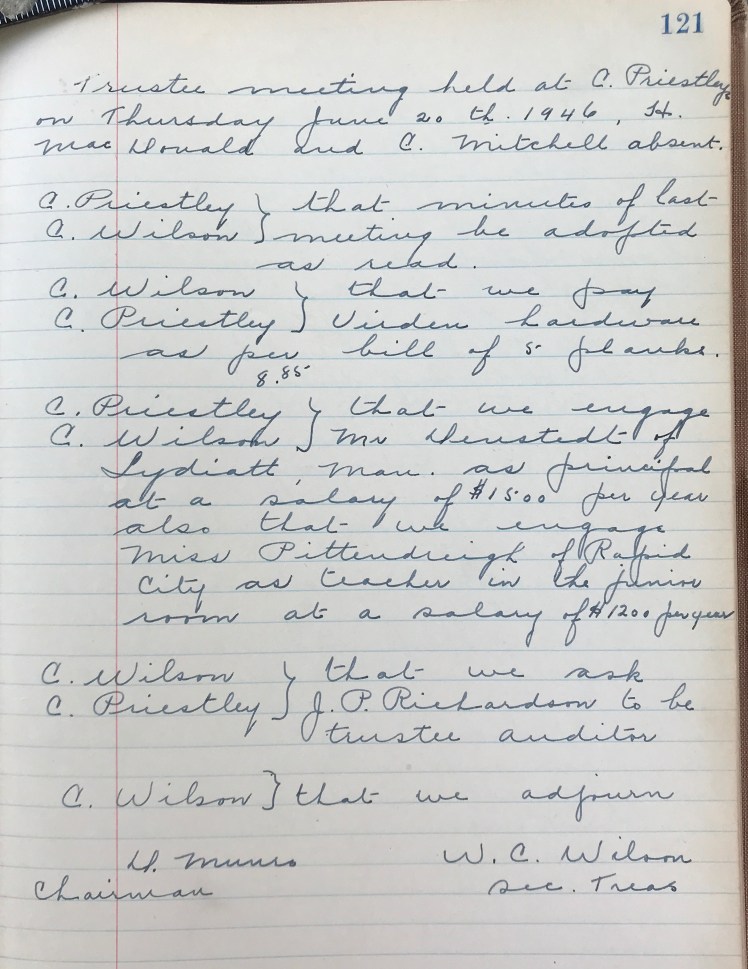 121
Trustee meeting held at C. Priestleys
on Thursday June 20 th. 1946, H.
MacDonald and C. Mitchell absent.
C. Priestley } that minutes of last
C. Wilson } meeting be adopted
as read.
C. Wilson } that we pay
C. Priestley } Virden hardware
as per bill of 5 planks.
8.85
C. Priestley } that we engage
C. Wilson } Mr Denstedt of
Lydiatt, Man. as principal
at a salary of $1500 per year
also that we engage
Miss Pittendreigh of Rapid
City as teacher in the junior
room at a salary of $1200 per year
C. Wilson } that we ask
C. Priestley } J. P. Richardson to be
trustee auditor
C. Wilson } that we adjourn
D. Munro W. C. Wilson
Chairman Sec. Treas